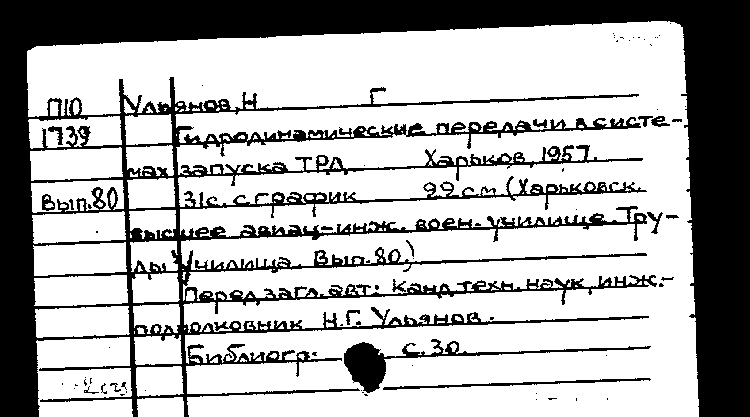 П10 Ульянов, Н Г
1739 Гидродинамические передачи в систе-
мах запуска ТРД. Харьков, 1957.
Вып.80 31с. с график 22см (Харьковск.
высшее авиац-инж. воен. училище. Тру-
ды училища. Вып. 80.)
Перед загл. авт: канд техн. наук, инж.-
подполковник Н.Г. Ульянов.
Библиогр: с. 30.